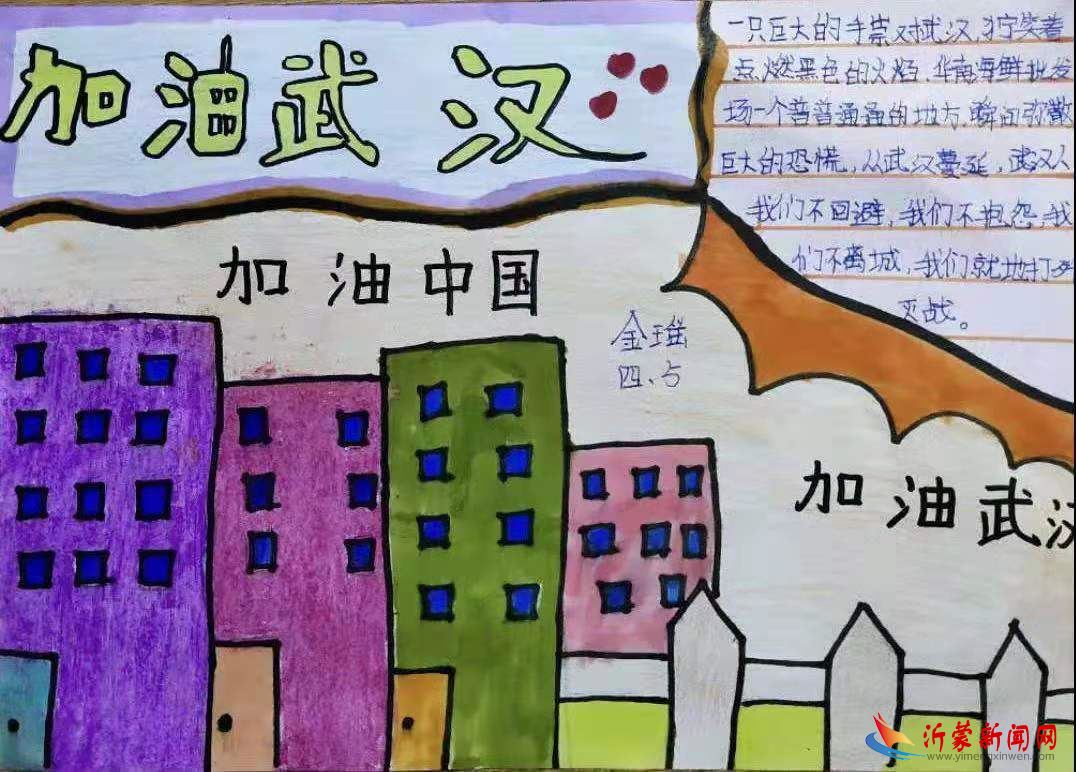 加油武汉
一只巨大的手禁对武汉,狞笑着
点燃黑色的火焰,华南海鲜批发
场一个普普通通的地方,瞬间弥散
巨大的恐慌,从武汉蔓延,武汉人
我们不回避,我们不抱怨,我
们不离城,我们就地打歼
灭战。
加油中国
金瑶
四、5
加油武汉
沂蒙新闻网
www.yimengxinwen.com